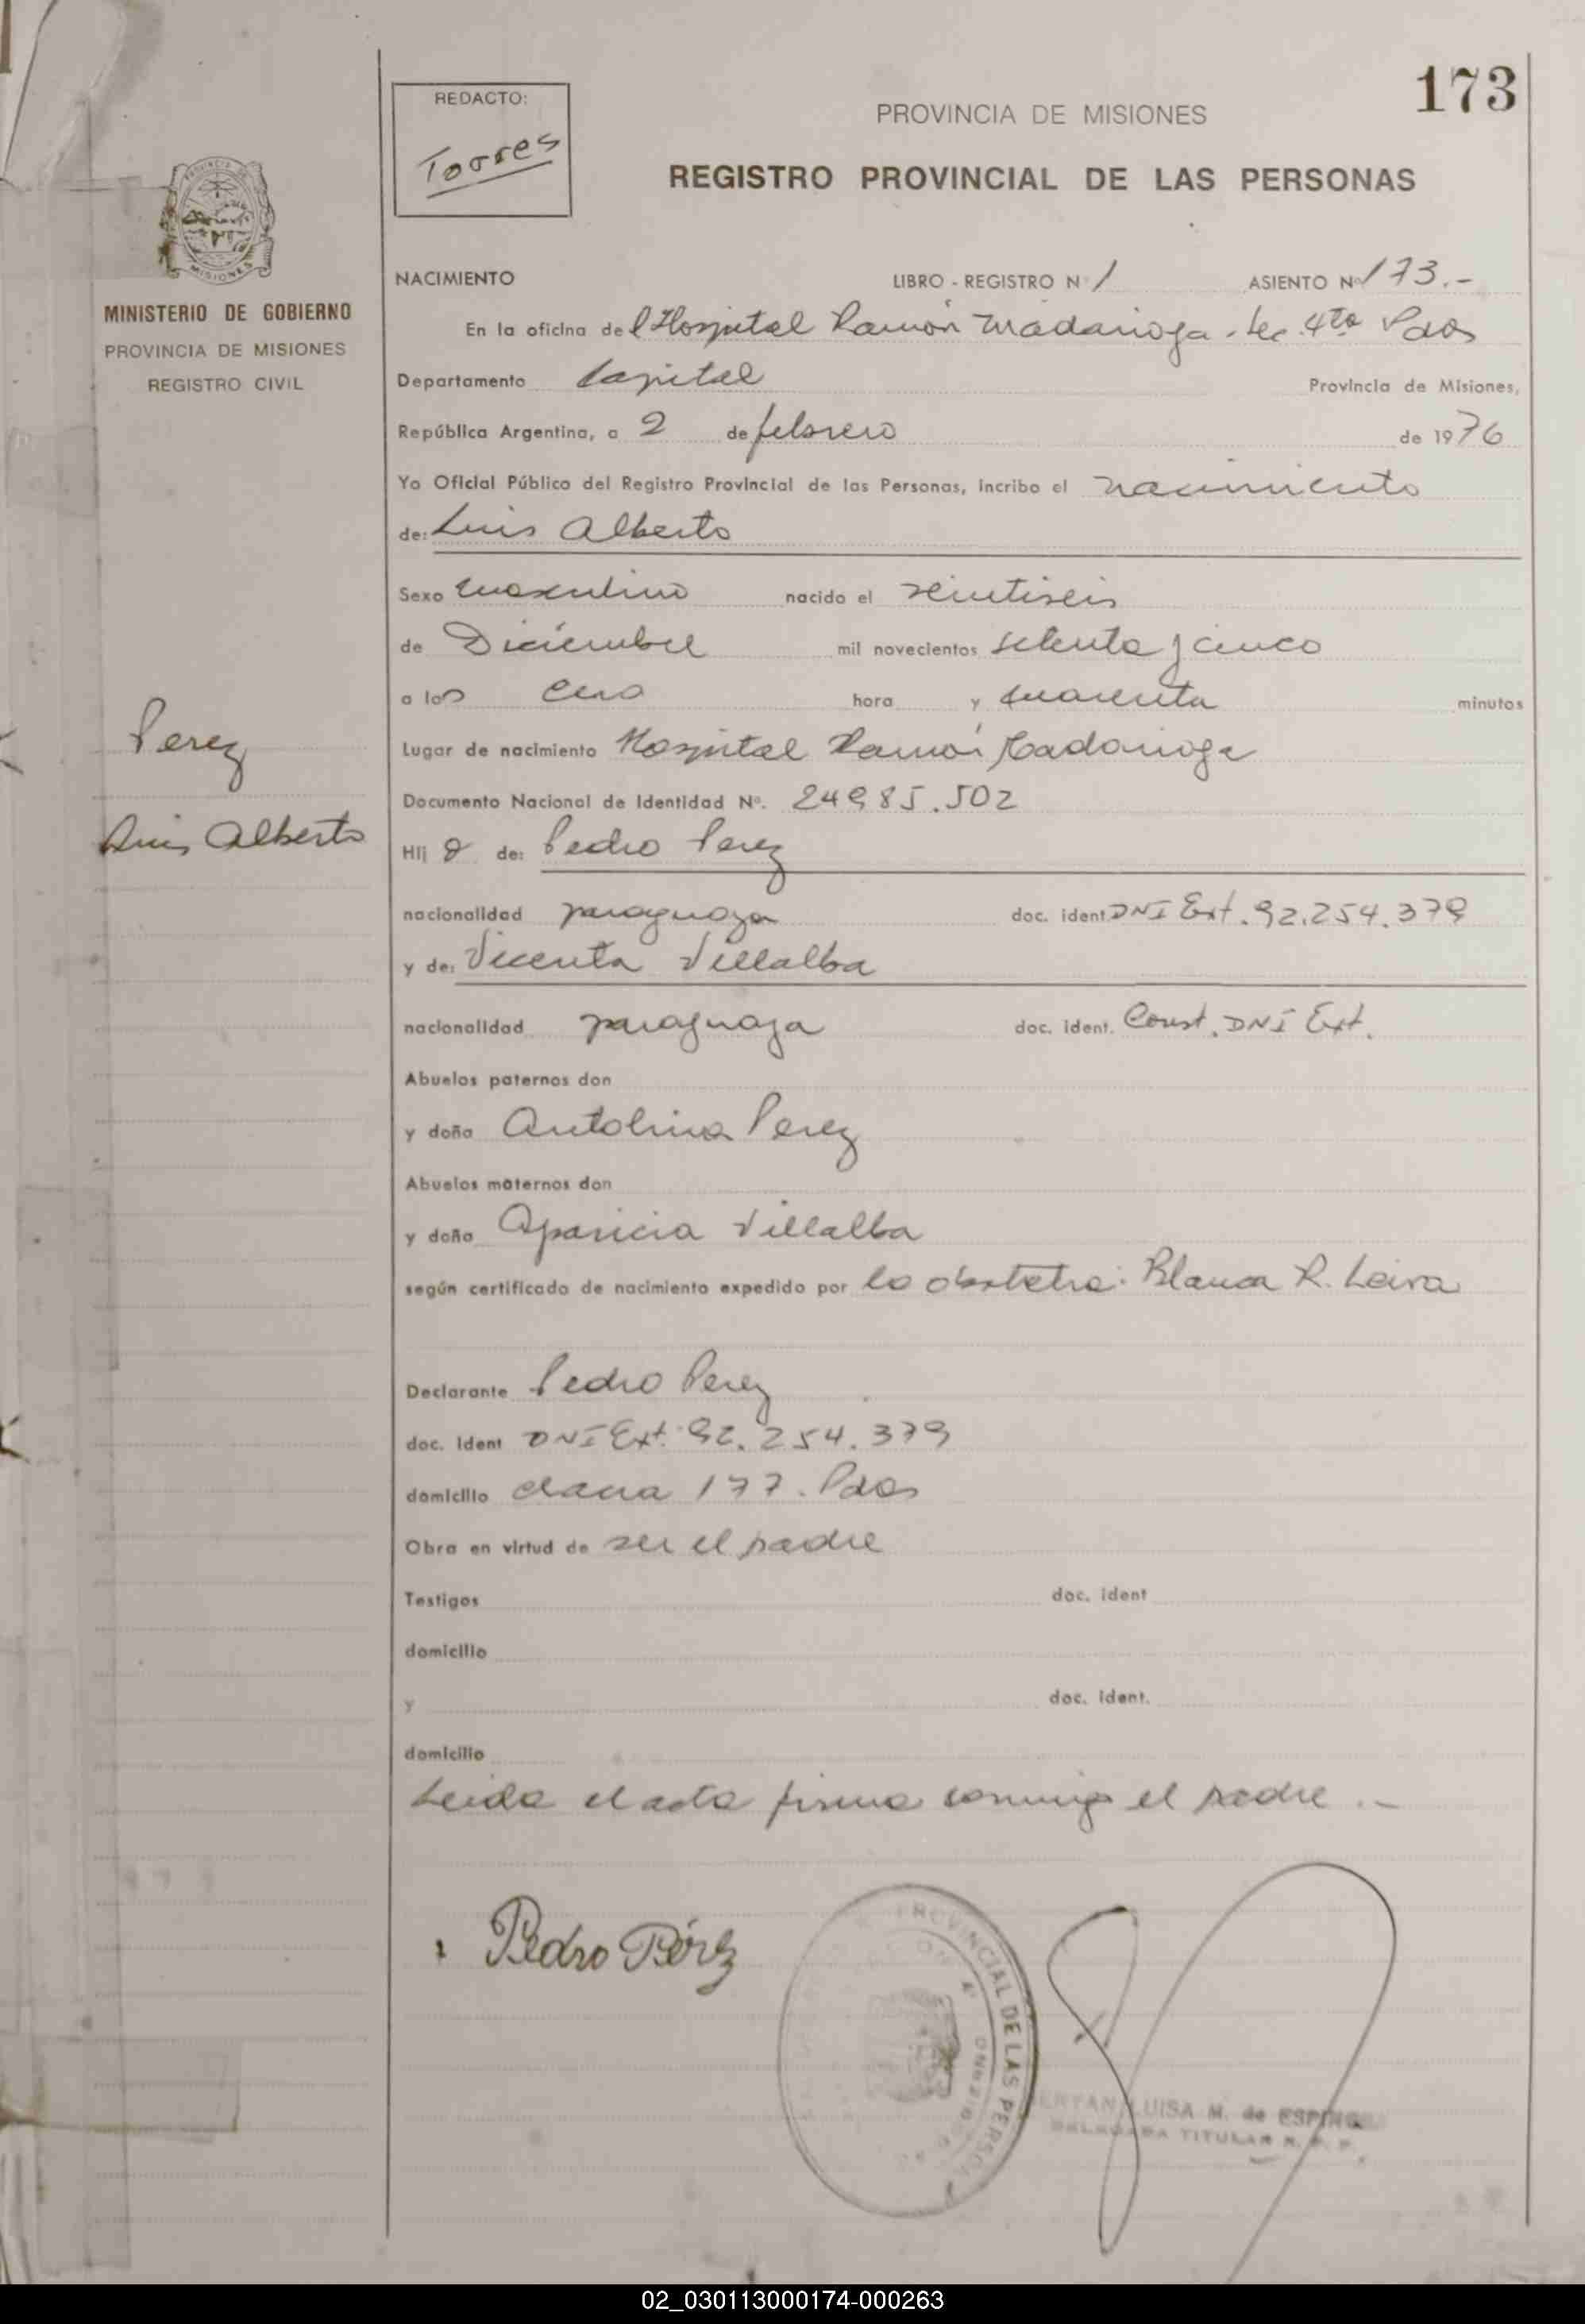 173
REDACTO:
Torres
PROVINCIA DE MISIONES
REGISTRO PROVINCIAL DE LAS PERSONAS
MISIONES
MINISTERIO DE GOBIERNO
PROVINCIA DE MISIONES
REGISTRO CIVIL
NACIMIENTO LIBRO - REGISTRO N 1 ASIENTO Nº 173.-
En la oficina del Hospital Ramón Madariaga - Sec 4ta Pdas
Departamento Capital Provincia de Misiones,
República Argentina, a 2 de febrero de 1976
Yo Oficial Público del Registro Provincial de las Personas, incribo el nacimiento
de: Luis Alberto
Sexo masculino nacido el veintiseis
de Diciembre mil novecientos setenta y cinco
a las cero hora y cuarenta minutos
Perez
Luis Alberto
Lugar de nacimiento Hospital Ramón Madariaga
Documento Nacional de Identidad Nº. 24985.502
Hij o de: Pedro Perez
nacionalidad paraguaya doc. ident. DNI Ext. 92.254.379
y de: Vicenta Villalba
nacionalidad paraguaya doc. ident. Const. DNI Ext.
Abuelos paternos don
y doña Antolina Perez
Abuelos maternos don
y doña Aparicia Villalba
según certificado de nacimiento expedido por la obstetra: Blanca R. Leiva
Declarante Pedro Perez
doc. Ident DNI Ext. 92.254.379
domicilio chacra 177. Pdas
Obra en virtud de ser el padre
Testigos doc. ident
domicilio
y doc. ident.
domicilio
Leida el acta firma conmigo el padre .-
Pedro Pérez
PROVINCIAL DE LAS PERSONAS
LUISA M. de ESPINOZA
DELEGADA TITULAR R. P. P.
02_030113000174-000263